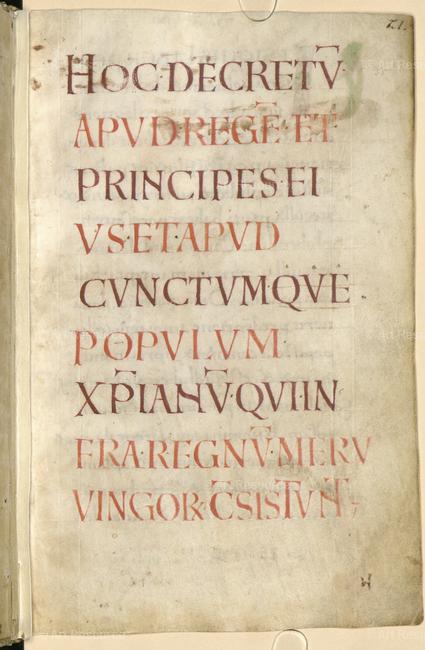 HOC·DECRETŪ·
APVD·REGĒ·ET
PRINCIPES·EI
VS·ET·APVD
CVNCTVMQVE·
POPVLVM·
XP̄IANŪ·QVI·IN
FRA·REGNŪ·MERV
VINGOR̄·C̄SISTVNT;